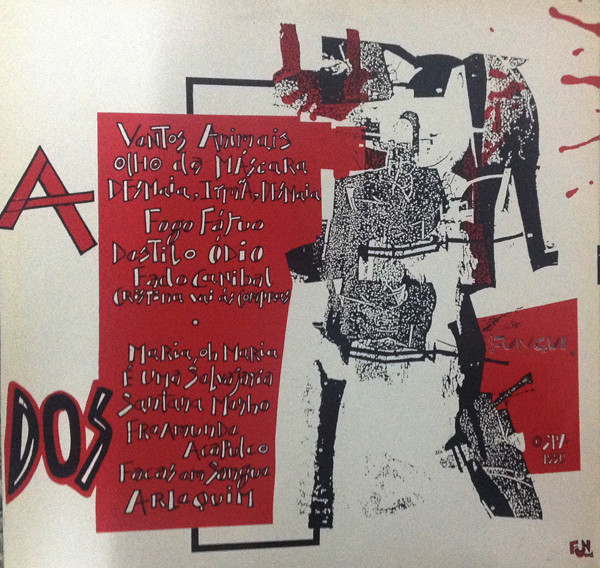 A
Ventos Animais
Olho da Máscara
Desmaia, Irmã, Desmaia
Fogo Fátuo
Destilo Ódio
Fado Canibal
Cristina vai às compras
Maria, oh Maria
É uma Selvajaria
Freamunde
Acapulco
Facas em Sangue
Arlequim
DOS
1990
FUN